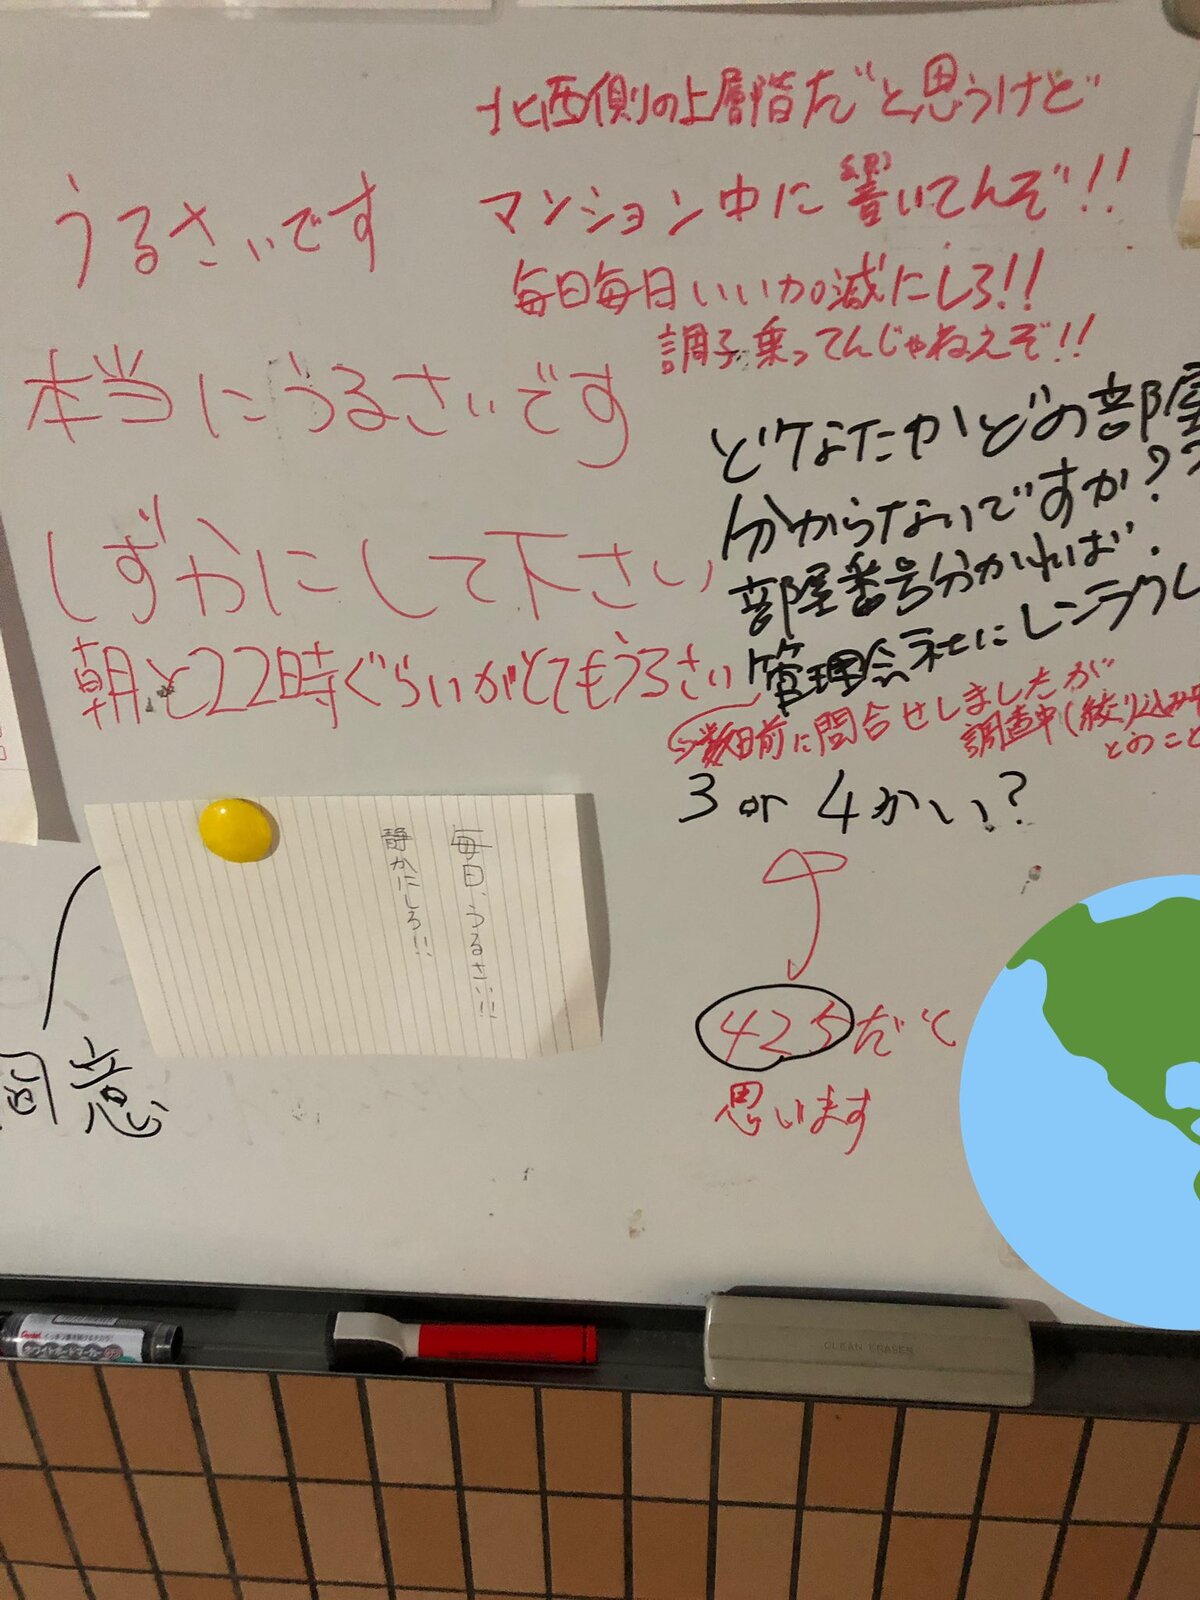 うるさいです
本当にうるさいです
しずかにして下さい
朝と22時ぐらいがとてもうるさい
北西側の上層階だと思うけど
マンション中に響いてんぞ!!
毎日毎日いい加減にしろ!!
調子乗ってんじゃねえぞ!!
どなたかどの部屋
分からないですか??
部屋番号分かれば
管理会社にレンラクし
数日前に問合せしましたが
調査中(絞り込み中
とのこと
3 or 4かい?
425だと
思います
毎日、うるさい!!
静かにしろ!!
同意
Pentel
ホワイトボードマーカー
CLEAN ERASER